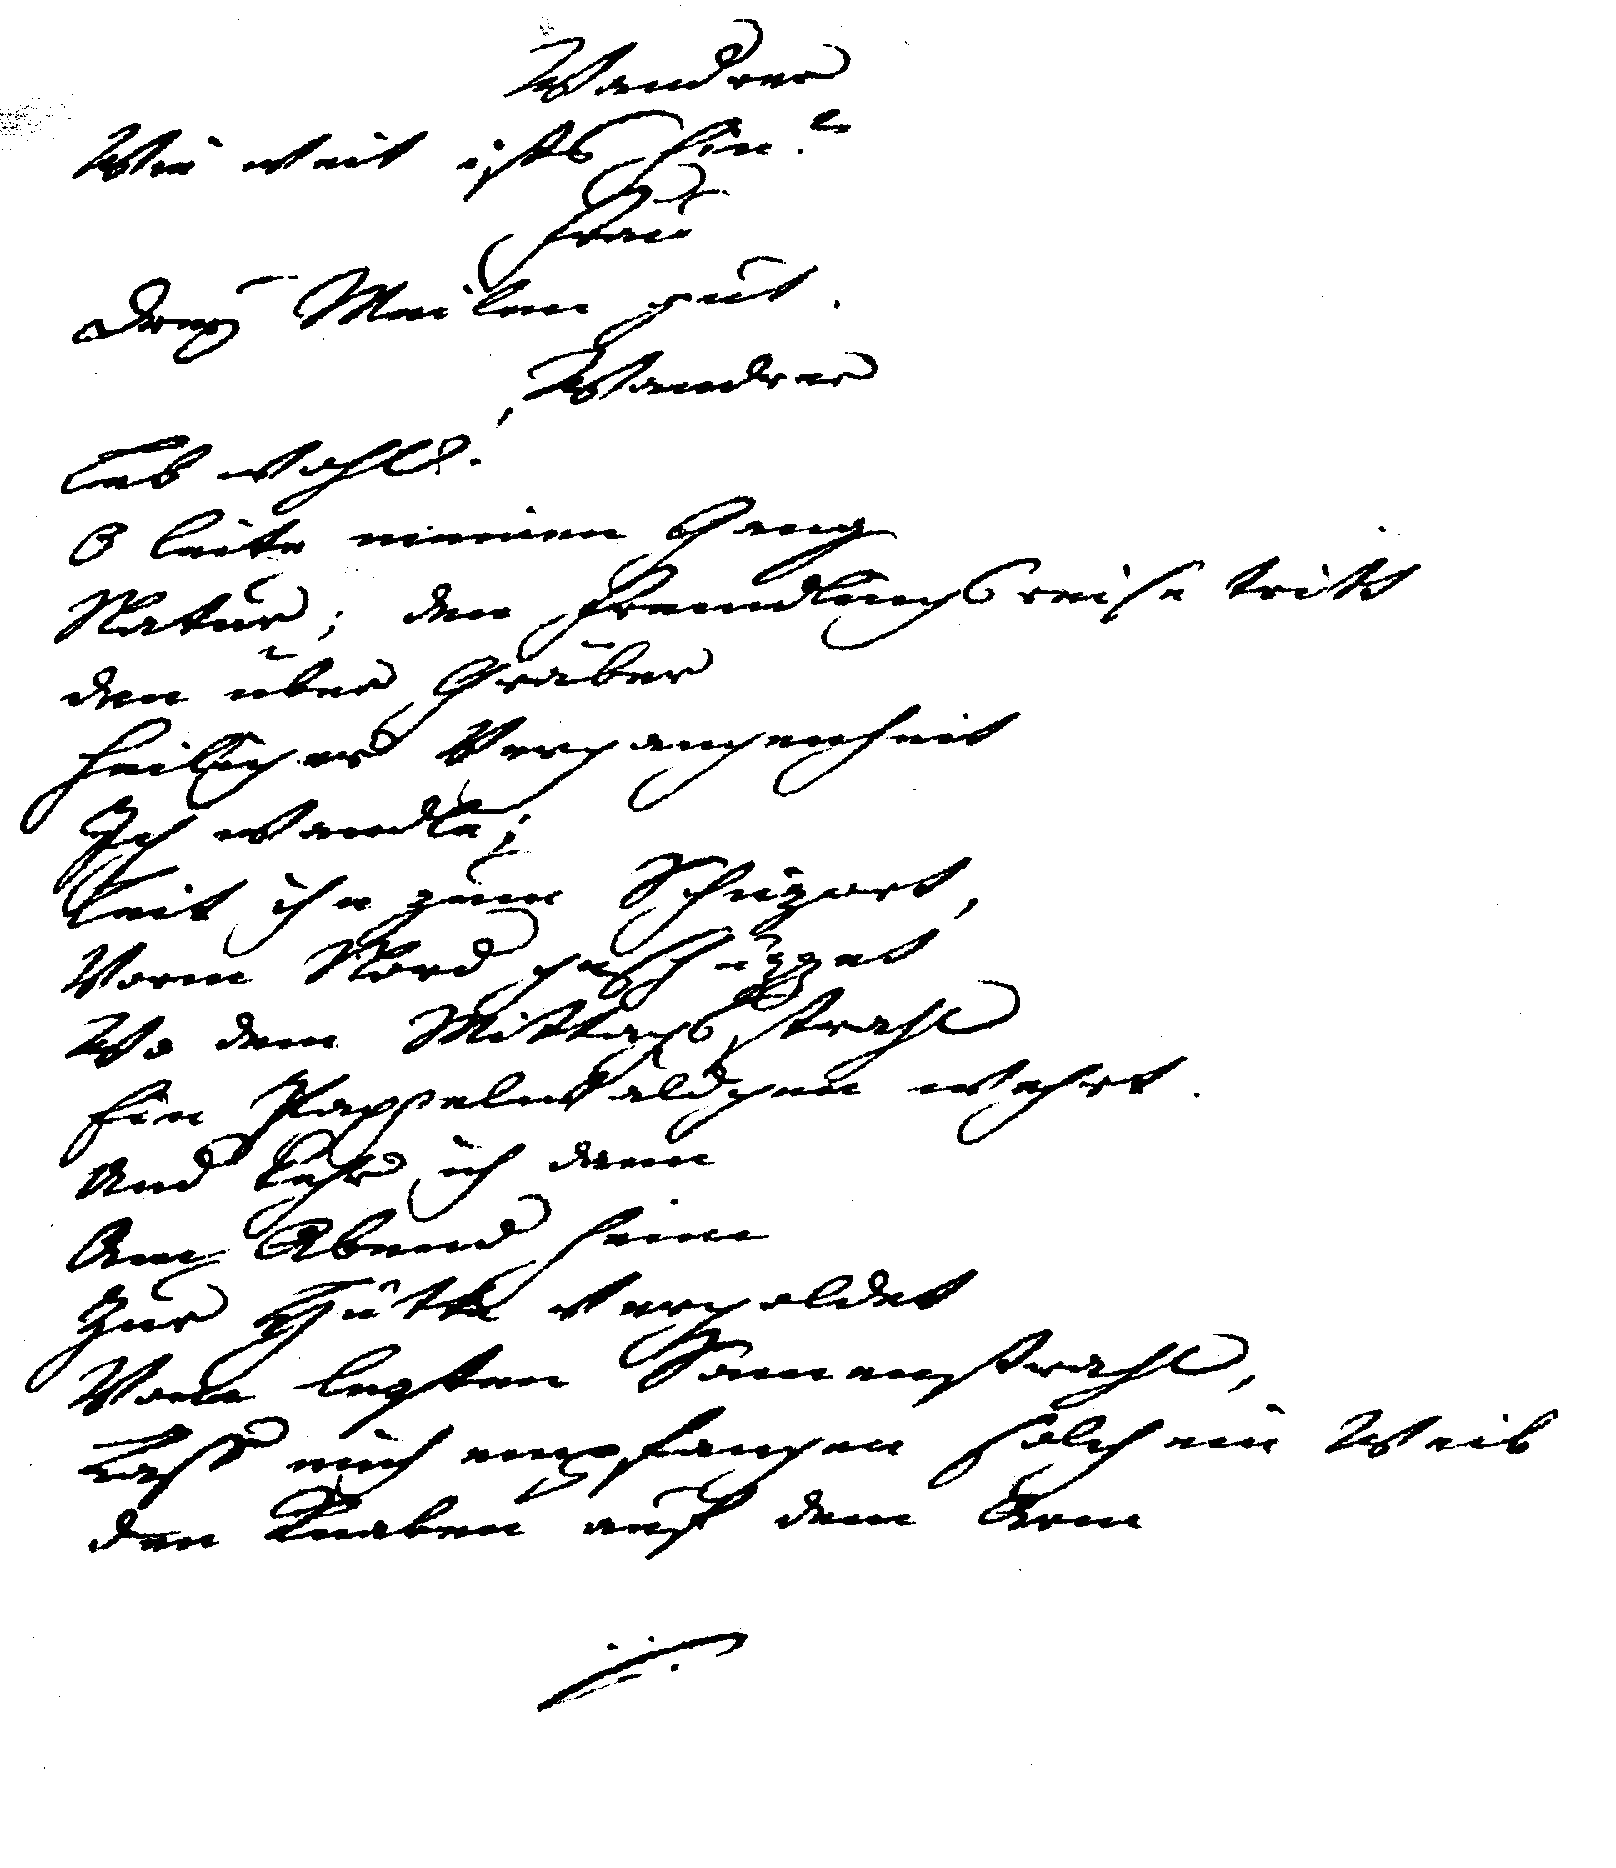 Wandrer
Wie weit ists hin?
Frau
Drey Meilen gut.
Wandrer
Leb wohl!
O leite meinen Gang
Natur; den Fremdlingsreisetritt
den über Gräber
heiliger Vergangenheit
Ich wandle;
Leit ihn zum Schuzort,
Vorm Nord geschüzzet
Wo dem Mittagsstrahl
Ein Pappelwäldchen wehrt.
Und kehr ich dann
Am Abend heim
Zur Hütte vergoldet
Vom lezten Sonnenstrahl,
Lass mich empfangen solch ein Weib
den Knaben auf dem Arm